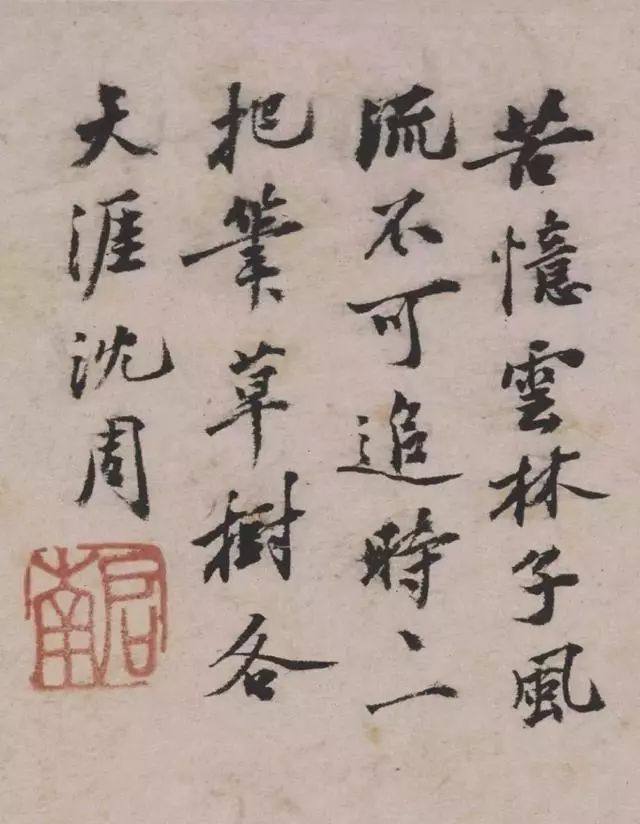 苦憶雲林子風
流不可追時〻一
把筆草樹各
天涯沈周
啓南